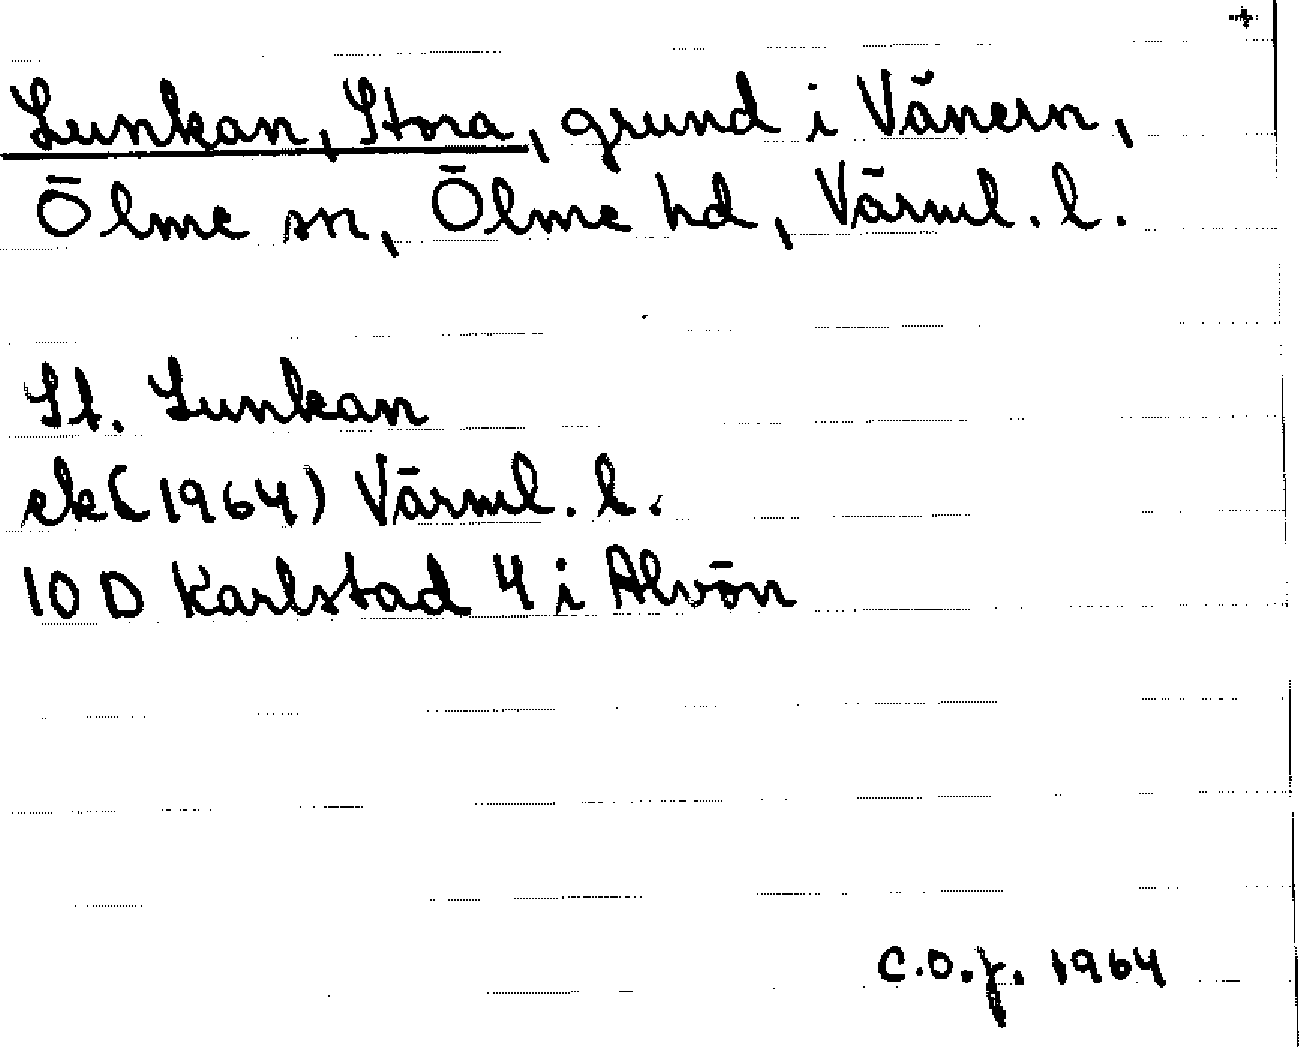 +
Lunkan, Stora, grund i Vänern,
Ölme sn, Ölme hd, Värml. l.
St. Lunkan
ek (1964) Värml. l.
10 D Karlstad 4 i Alvön
C.O.J. 1964